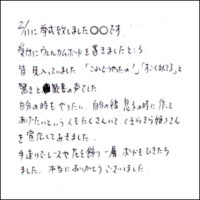 2/11に挙式致しました○○です
受付にウェルカムボードを置きましたところ
皆 見入っていました 「これどうやったの?」「すごくキレイ」と
驚きと 歓喜の声でした
自分の時もやりたい、自分の娘 息子の時に 作って
あげたいという人もたくさんいて くまらきら
宣伝しておきました
手造りでレースや花を飾り一層 ボードもひきたち
ました。本当にありがとうございました